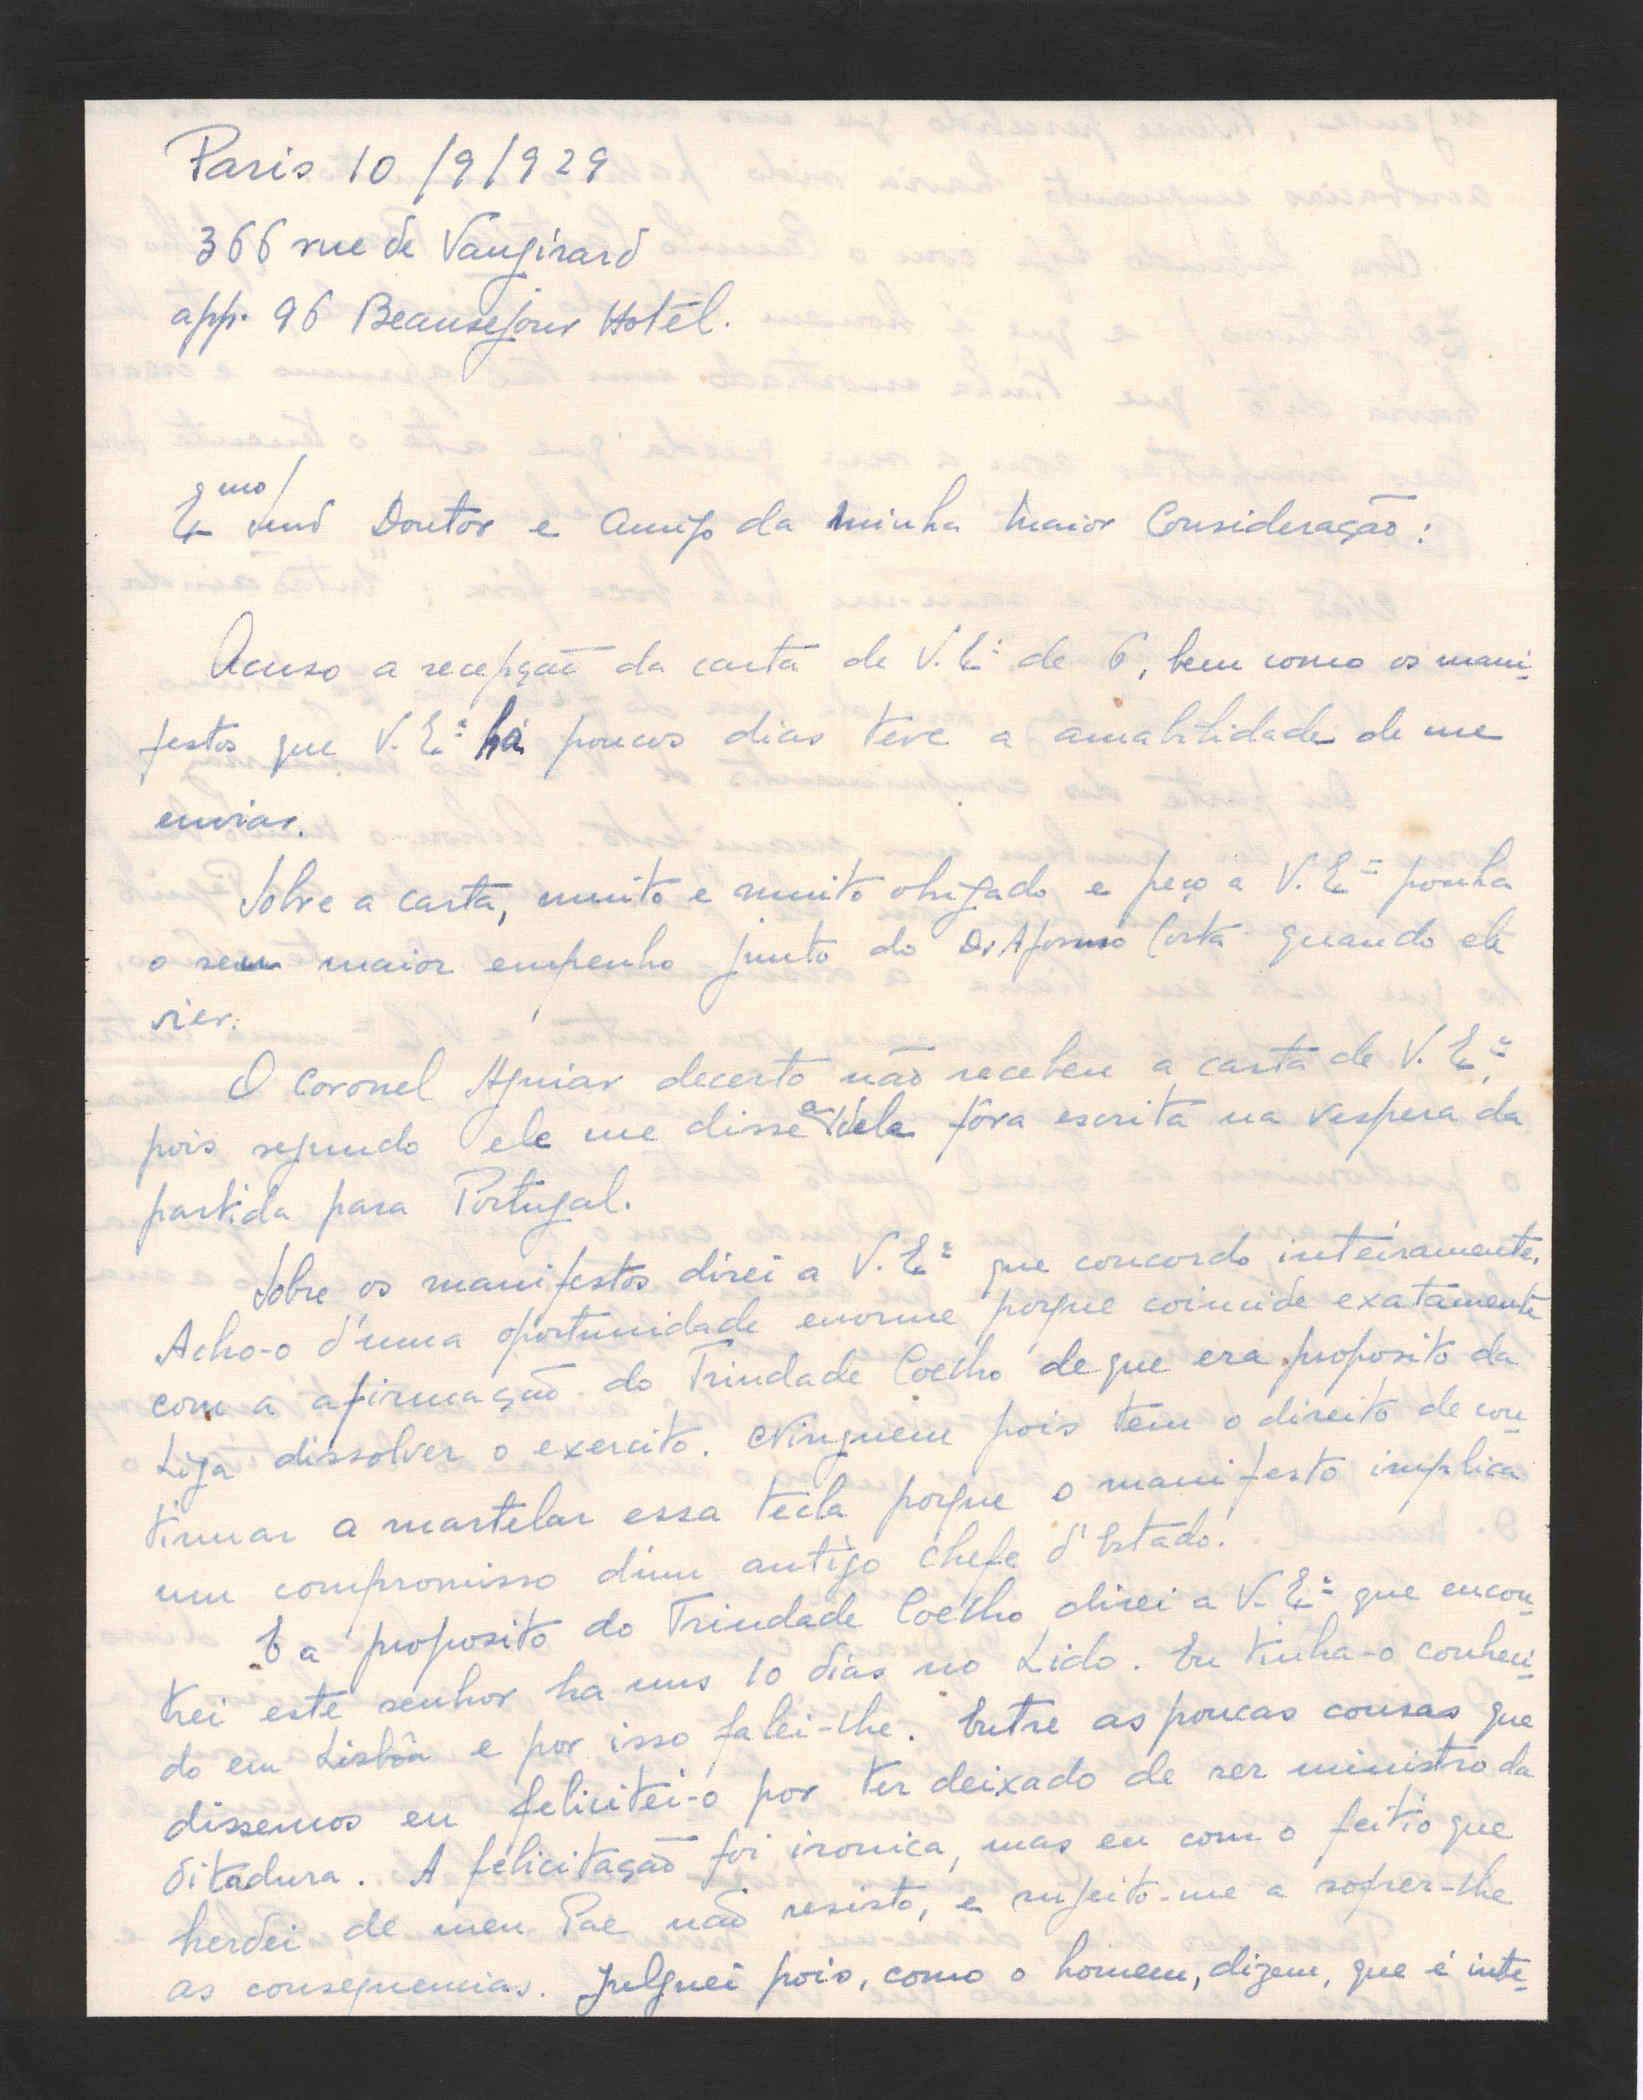 Paris 10/9/929
366 rue de Vaugirard
app. 96 Beausejour Hotel.
Exmo Snr Doutor e Amigo da minha maior Consideração:
Acuso a recepção da carta de V. Exª de 6, bem como os mani-
festos que V. Exª há poucos dias teve a amabilidade de me
enviar.
Sobre a carta, muito e muito obrigado e peço a V. Exª ponha
o seu maior empenho junto do Dr Afonso Costa quando ele
vier.
O Coronel Aguiar decerto não recebeu a carta de V. Exª,
pois segundo ele me disse a dele fôra escrita na vespera da
partida para Portugal.
Sobre os manifestos direi a V. Exª que concordo inteiramente.
Acho-o d'uma oportunidade enorme porque coincide exatamente
com a afirmação do Trindade Coelho de que era proposito da
Liga dissolver o exercito. Ninguem pois tem o direito de con-
tinuar a martelar essa tecla porque o manifesto implica
um compromisso d'um antigo chefe d'Estado.
E a proposito do Trindade Coelho direi a V. Exª que encon-
trei este senhor ha uns 10 dias no Lido. Eu tinha-o conheci-
do em Lisbôa e por isso falei-lhe. Entre as poucas cousas que
dissemos eu felicitei-o por ter deixado de ser ministro da
ditadura. A felicitação foi ironica, mas eu com o feitio que
herdei de meu Pae não resisto, e sujeito-me a sofrer-lhe
as consequencias. Julguei pois, como o homem, dizem, que é inte-